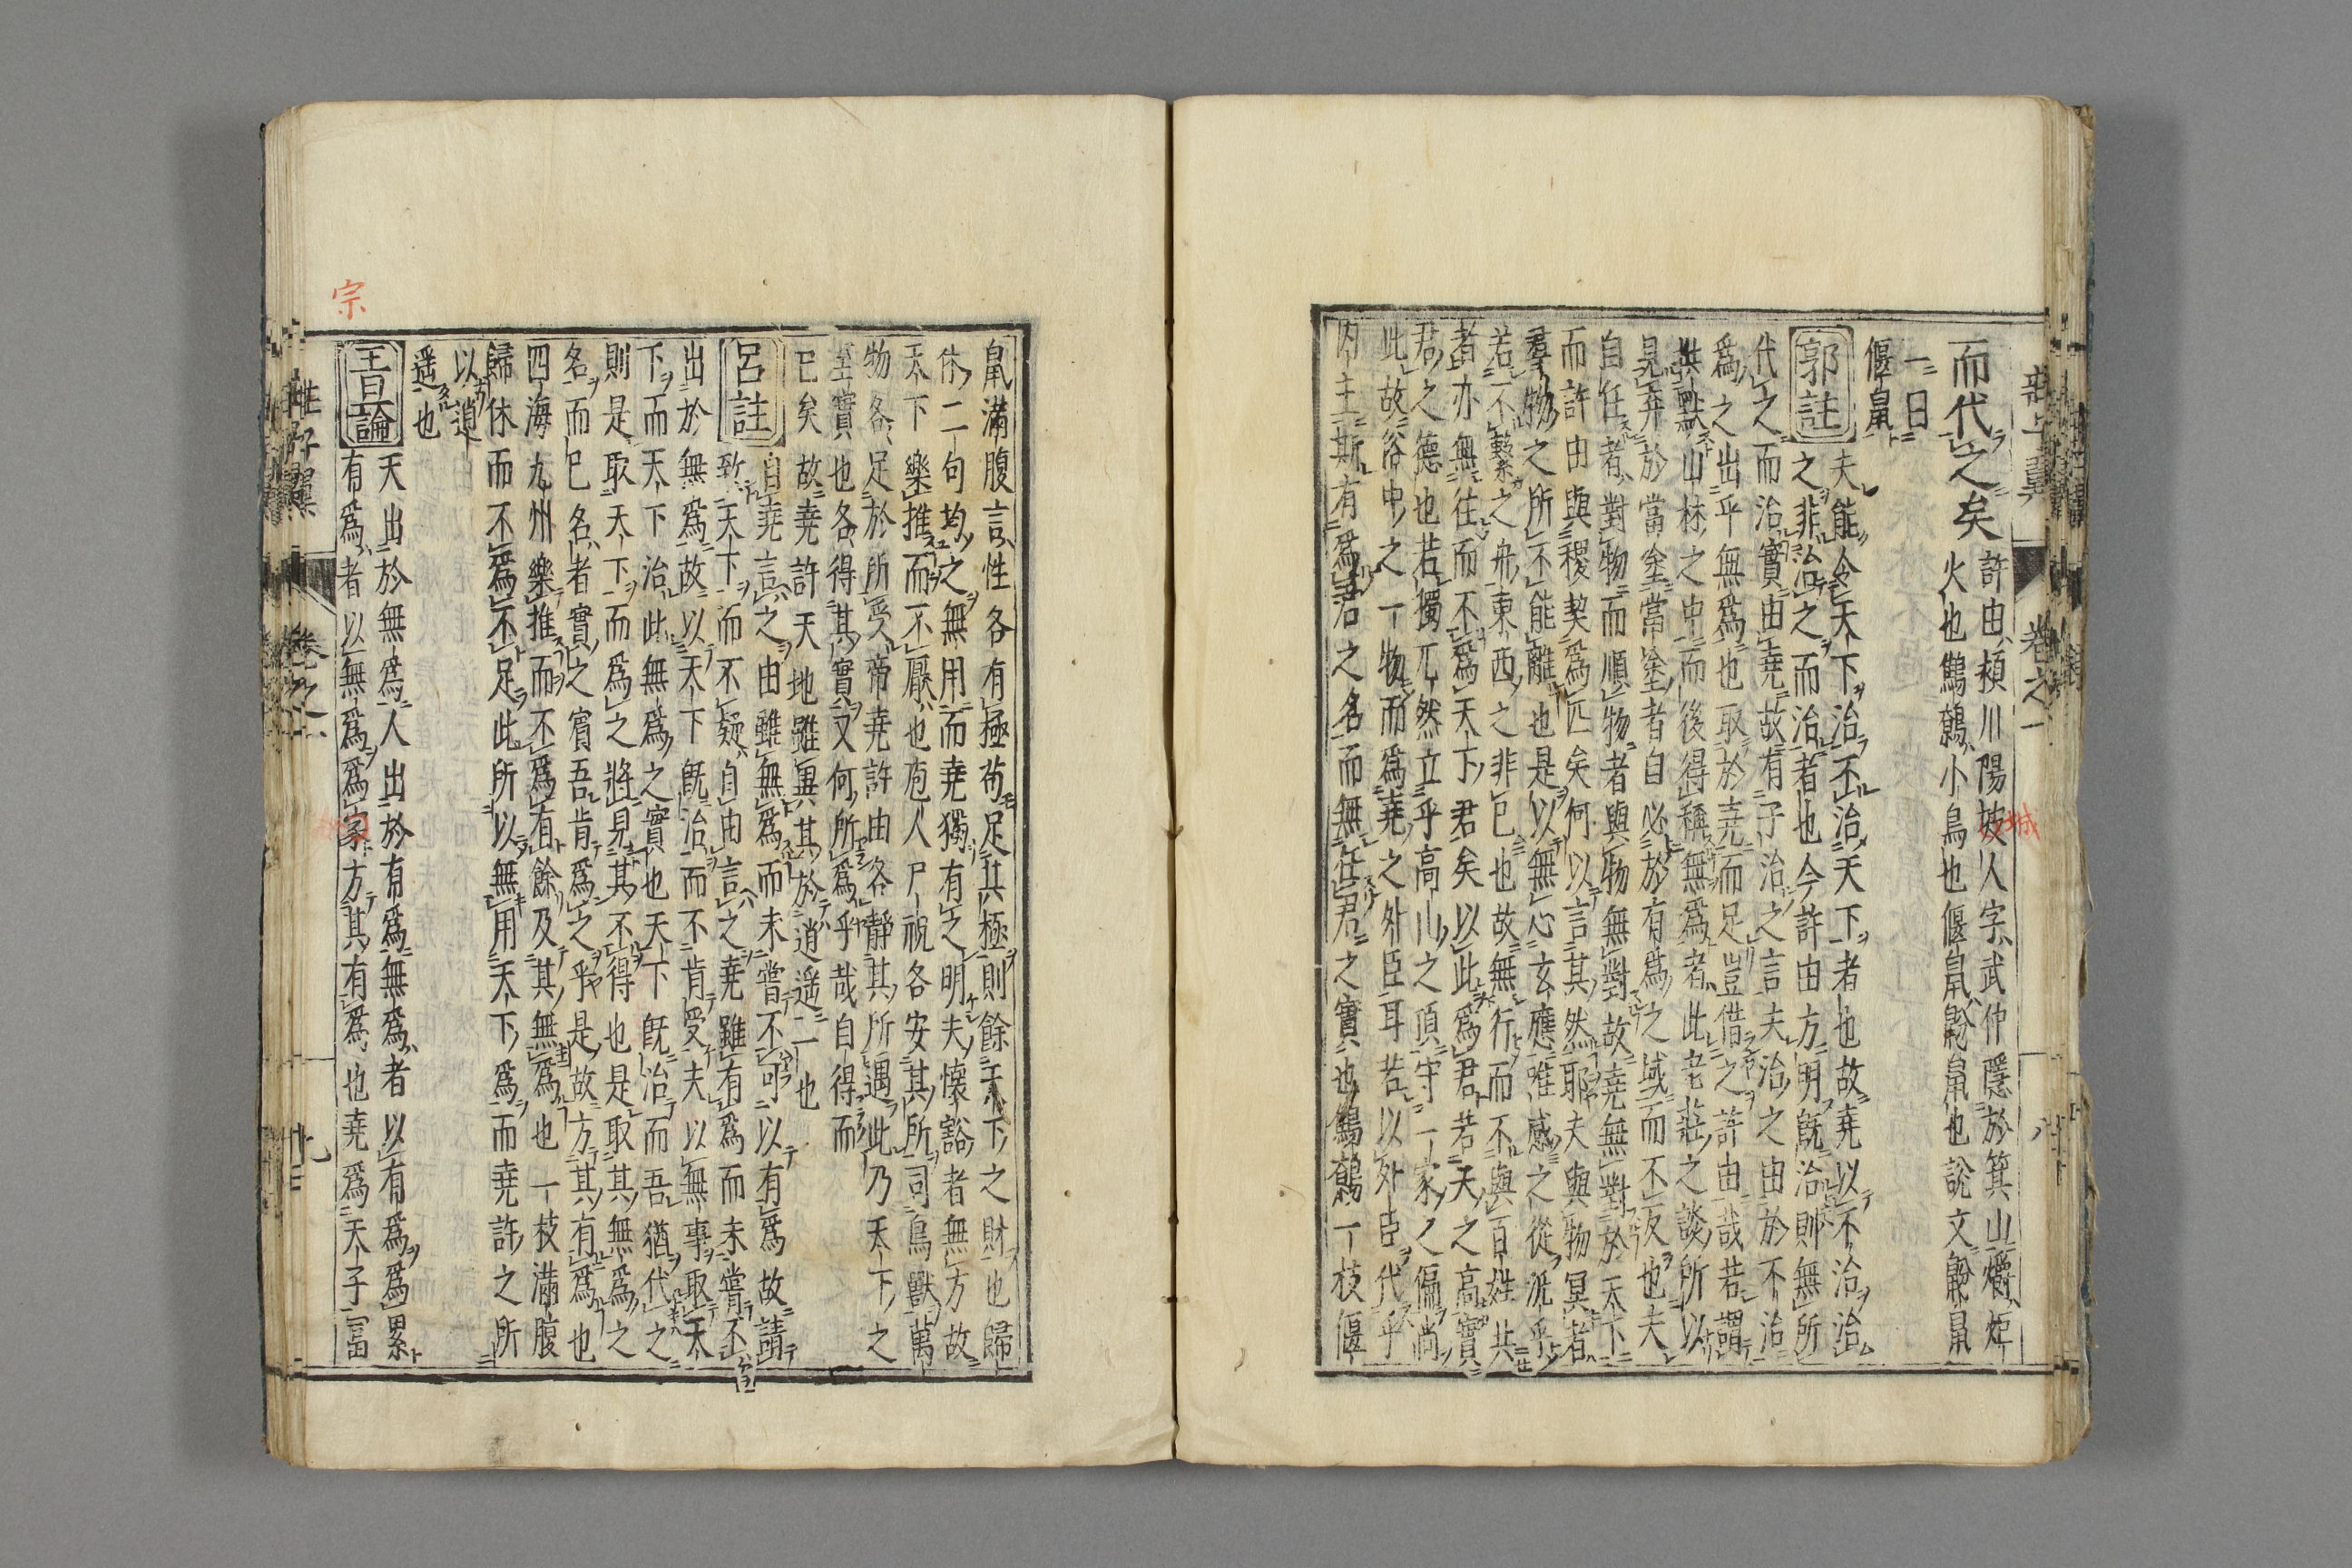 而代之矣 許由潁川陽城人字武仲隱於箕山爝炬
火也鷦鷯小鳥也偃鼠鼢鼠也說文鼢鼠
一曰
偃鼠
郭註 夫能令天下治不治天下者也故堯以不治治
之非治之而治者也今許由方明旣治則無所
代之而治實由堯故有子治之言夫治之由於不治
爲之出乎無爲也取於堯而足豈借之許由哉若謂
拱默山林之中而後得稱無爲者此老莊之談所以
見弃於當塗當塗者自必於有爲之域而不反也夫
自任者對物而順物者與物無對故堯無對於天下
而許由與稷契爲匹矣何以言其然耶夫與物冥者
羣物之所不能離也是以無心玄應唯感之從汎乎
若不繫之舟東西之非已也故無行而不與百姓共
者亦無往而不爲天下君矣以此爲君若天之高實
君之德也若獨兀然立乎高山之頂守一家之偏尚
此故俗中之一物而爲堯之外臣耳若以外臣代乎
內主斯有爲君之名而無任君之實也鷦鷯一枝偃
莊子翼 卷之一 八
鼠滿腹言性各有極苟足其極則餘天下之財也歸
休二句均之無用而堯獨有之明夫懷豁者無方故
天下樂推而不厭也庖人尸祝各安其所司鳥獸萬
物各足於所受帝堯許由各靜其所遇此乃天下之
至實也各得其實又何所爲乎哉自得而
已矣故堯許天地雖異其於逍遥一也
呂註 自堯言之由雖無爲而未嘗不可以有爲故請
致天下而不疑自由言之堯雖有爲而未嘗不
出於無爲故以天下旣治而不肯受夫以無事取天
下而天下治此無爲之實也天下旣治而吾猶代之
則是取天下而爲之將見其不得也是取其無爲之
名而已名者實之賓吾肯爲之乎是故方其有爲也
四海九州樂推而不爲有餘及其無爲也一枝滿腹
歸休而不爲不足此所以無用天下爲而堯許之所
以逍
遥也
音論 天出於無爲人出於有爲無爲者以有爲爲累
有爲者以無爲爲家方其有爲也堯爲天子富
莊子翼 卷之一 九
宗
城